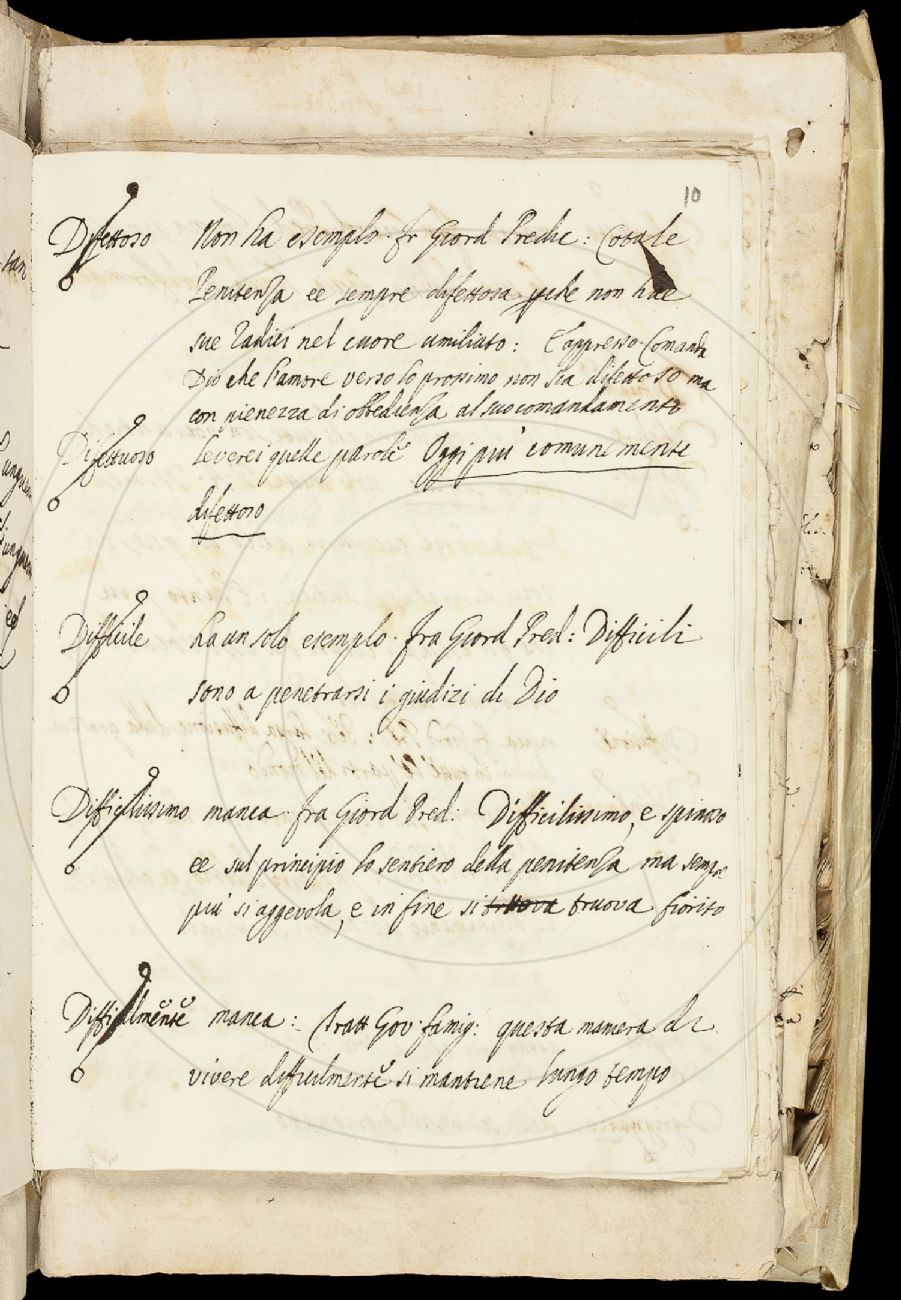 10
Difettoso Non ha esemplo. fr Giord Predic: Cotale
Penitenza ee sempre difettosa perche non hae
sue radici nel cuore umiliato: E appresso. Comanda
Dio che l'amore verso lo prossimo non sia difettoso ma
con pienezza di obbedienza al suo comandamento
Difettuoso leverei quelle parole Oggi più comunemente
difettoso
Difficile ha un solo esemplo. fra Giord Pred: Difficili
sono a penetrarsi i giudizi di Dio
Difficilissimo manca. fra Giord Pred: Difficilissimo, e spinoso
ee sul principio lo sentiero della penitenza ma sempre
più si aggevola, e in fine si truova truova fiorito
Difficilmente manca: Tratt Gov. famig: questa maniera di
vivere difficilmente si mantiene lungo tempo